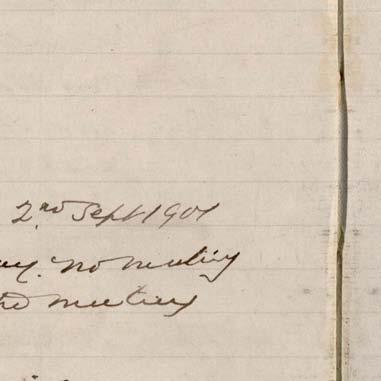 2nd Sept 1901
no meeting
the meeting